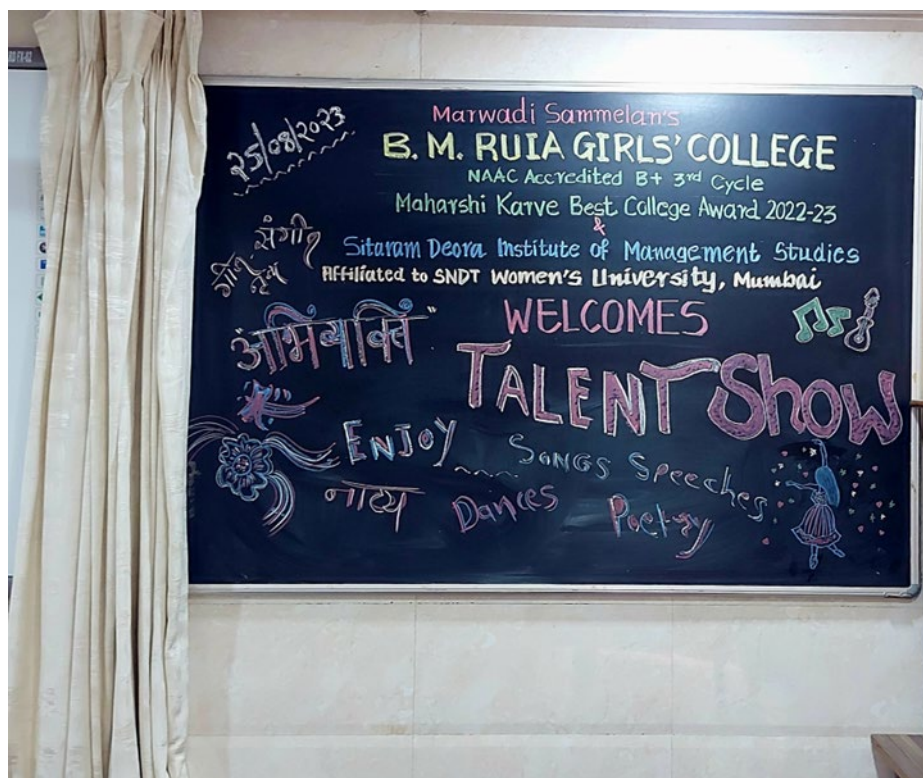 २५/०८/२०२३
Marwadi Sammelan's
B. M. RUIA GIRLS' COLLEGE
NAAC Accredited B+ 3rd Cycle
Maharshi Karve Best College Award 2022-23
&
Sitaram Deora Institute of Management Studies
Affiliated to SNDT Women's University, Mumbai
गीत संगीत
नृत्य
"अभिव्यक्ति"
WELCOMES
TALENT Show
ENJOY
SONGS Speeches
नाट्य Dances Poetry